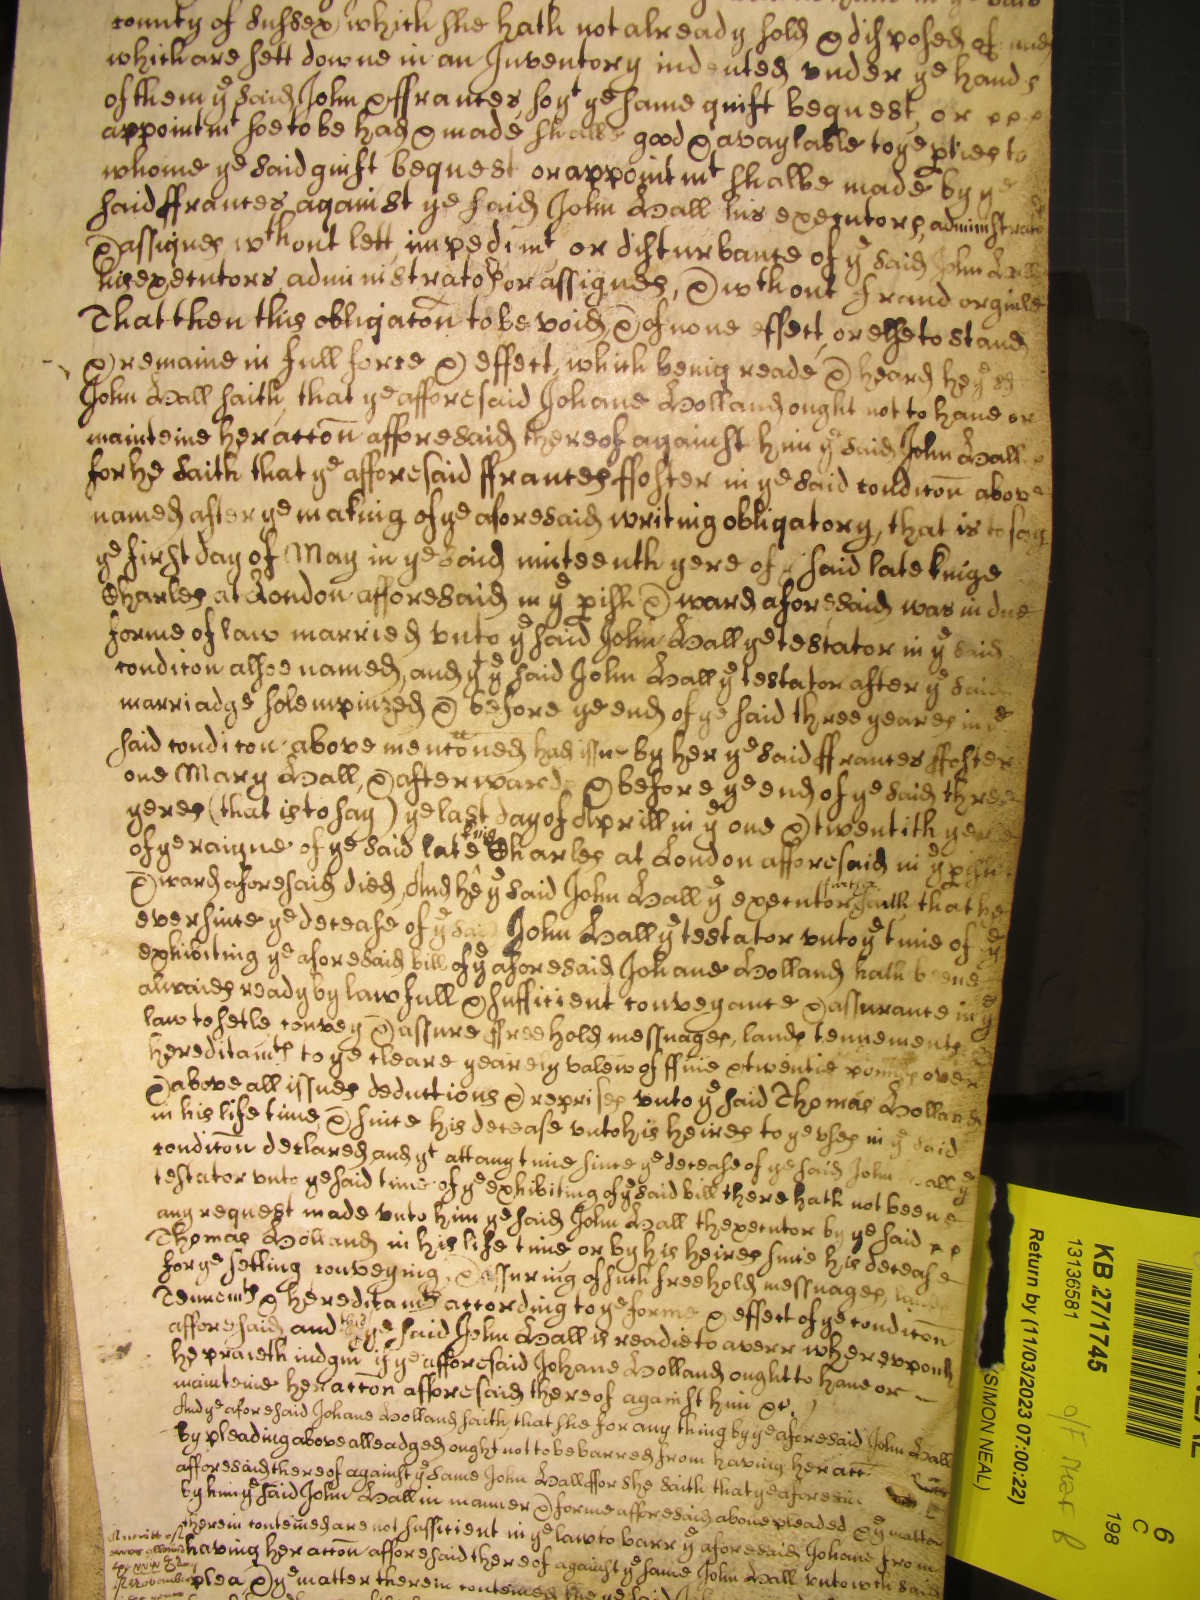 county of Sussex which she hath not already sold & disposed of and
which are sett downe in an Inventory indented vnder ye hands
of them ye said John & ffrances, so yt ye same guift bequest, or
appointmt soe to be had & made shalbe good & avaylable to ye pties to
whome ye said guift bequest or appointmt shalbe made by ye
said ffrances against ye said John Hall his executors, administrators
& assignes wthout lett, impedimt or disturbance of ye said John Hall
his executors administrators or assignes, & wthout fraud or guile
That then this obligacōn to be void & of none effect, or else to stand
& remaine in full force & effect, which being reade & heard he ye sd
John Hall saith that ye afforesaid Johane Holland ought not to haue or
mainteine her accōn afforesaid thereof against him ye said John Hall
for he saith that ye afforesaid ffrances ffoster in ye said condicōn above
named after ye making of ye aforesaid writing obligatory, that is to say
ye first day of May in ye said ninteenth yere of said late kinge
Charles at London afforesaid in ye pish & ward aforesaid was in due
forme of law married vnto ye said John Hall ye testator in ye said
condicon alsoe named, and yt ye said John Hall ye testator after ye said
marriadge solempnized & before ye end of ye said three yeares in ye
said condicon above mencōned had issue by her ye said ffrances ffoster
one Mary Hall, & afterwards & before ye end of ye said three
yeres (that is to say) ye last day of Aprill in ye one & twentith yere
of ye raigne of ye said late king Charles at London afforesaid in ye pish
& ward aforesaid died, And he ye said John Hall ye executor further saith, that he
ever since ye decease of ye said John Hall ye testator vnto ye time of ye
exhibiting ye aforesaid bill of ye aforesaid Johane Holland hath beene
alwaies ready by lawfull & sufficient conveyance & assurance in ye
law to setle convey & assure ffreehold messuages, lands tennements
hereditamts to ye cleare yearely valew of ffiue & twentie pounds over
& above all issues deductions & reprises vnto ye said Thomas Holland
in his life time, & since his decease vnto his heires to ye vses in ye said
condicōn declared, and yt att any time since ye decease of ye said John Hall ye
testator vnto ye said time of ye exhibiting of ye said bill there hath not beene
any request made vnto him ye said John Hall thexecutor by ye said
Thomas Holland in his life time or by his heires since his decease
for ye setling conveying, & assuring of such freehold messuages, lands
Tenemts & hereditamts according to ye forme & effect of ye condicōn
afforesaid, and this ye said John Hall is readie to averr wherevpon
he praieth iudgmt if ye afforesaid Johane Holland ought to haue or
mainteine her accōn afforesaid thereof against him &c.
And ye aforesaid Johane Holland saith, that she for any thing by ye aforesaid John Hall
by pleading above alleadged ought not to be barred from having her acc
afforesaid thereof against ye same John Hall ffor she saith that ye aforesaid
by him ye said John Hall in manner & forme afforesaid above pleaded & ye matter
therein conteined are not sufficient in ye law to barr ye aforesaid Johane from
having her accōn afforesaid thereof against ye same John Hall vnto wch said
plea & ye matter therein conteined she ye said
KB 27/1745
13136581
Return by (11/03/2023 07:00:22)
(SIMON NEAL)
6
C
198